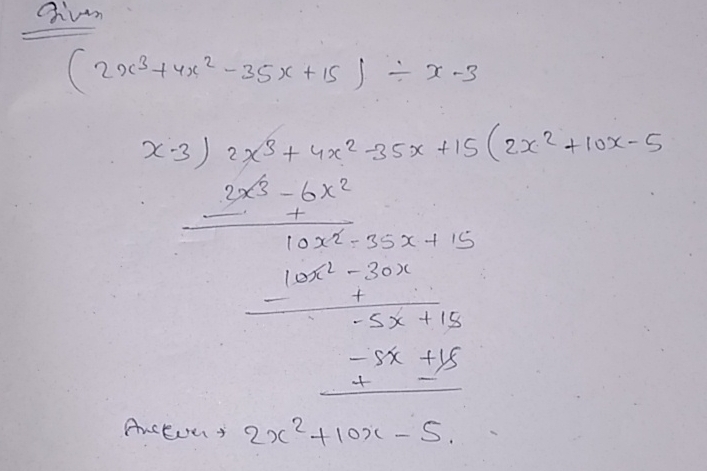 Given
(2x³+4x²-35x+15) ÷ x-3
x-3) 2x³+4x²-35x+15(2x²+10x-5
2x³-6x²
- +
10x²-35x+15
10x²-30x
- +
-5x+15
-5x+15
+ -
Answer → 2x²+10x-5.